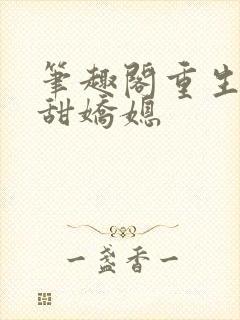 筆趣閣重生
甜嬌媳
一盞香一